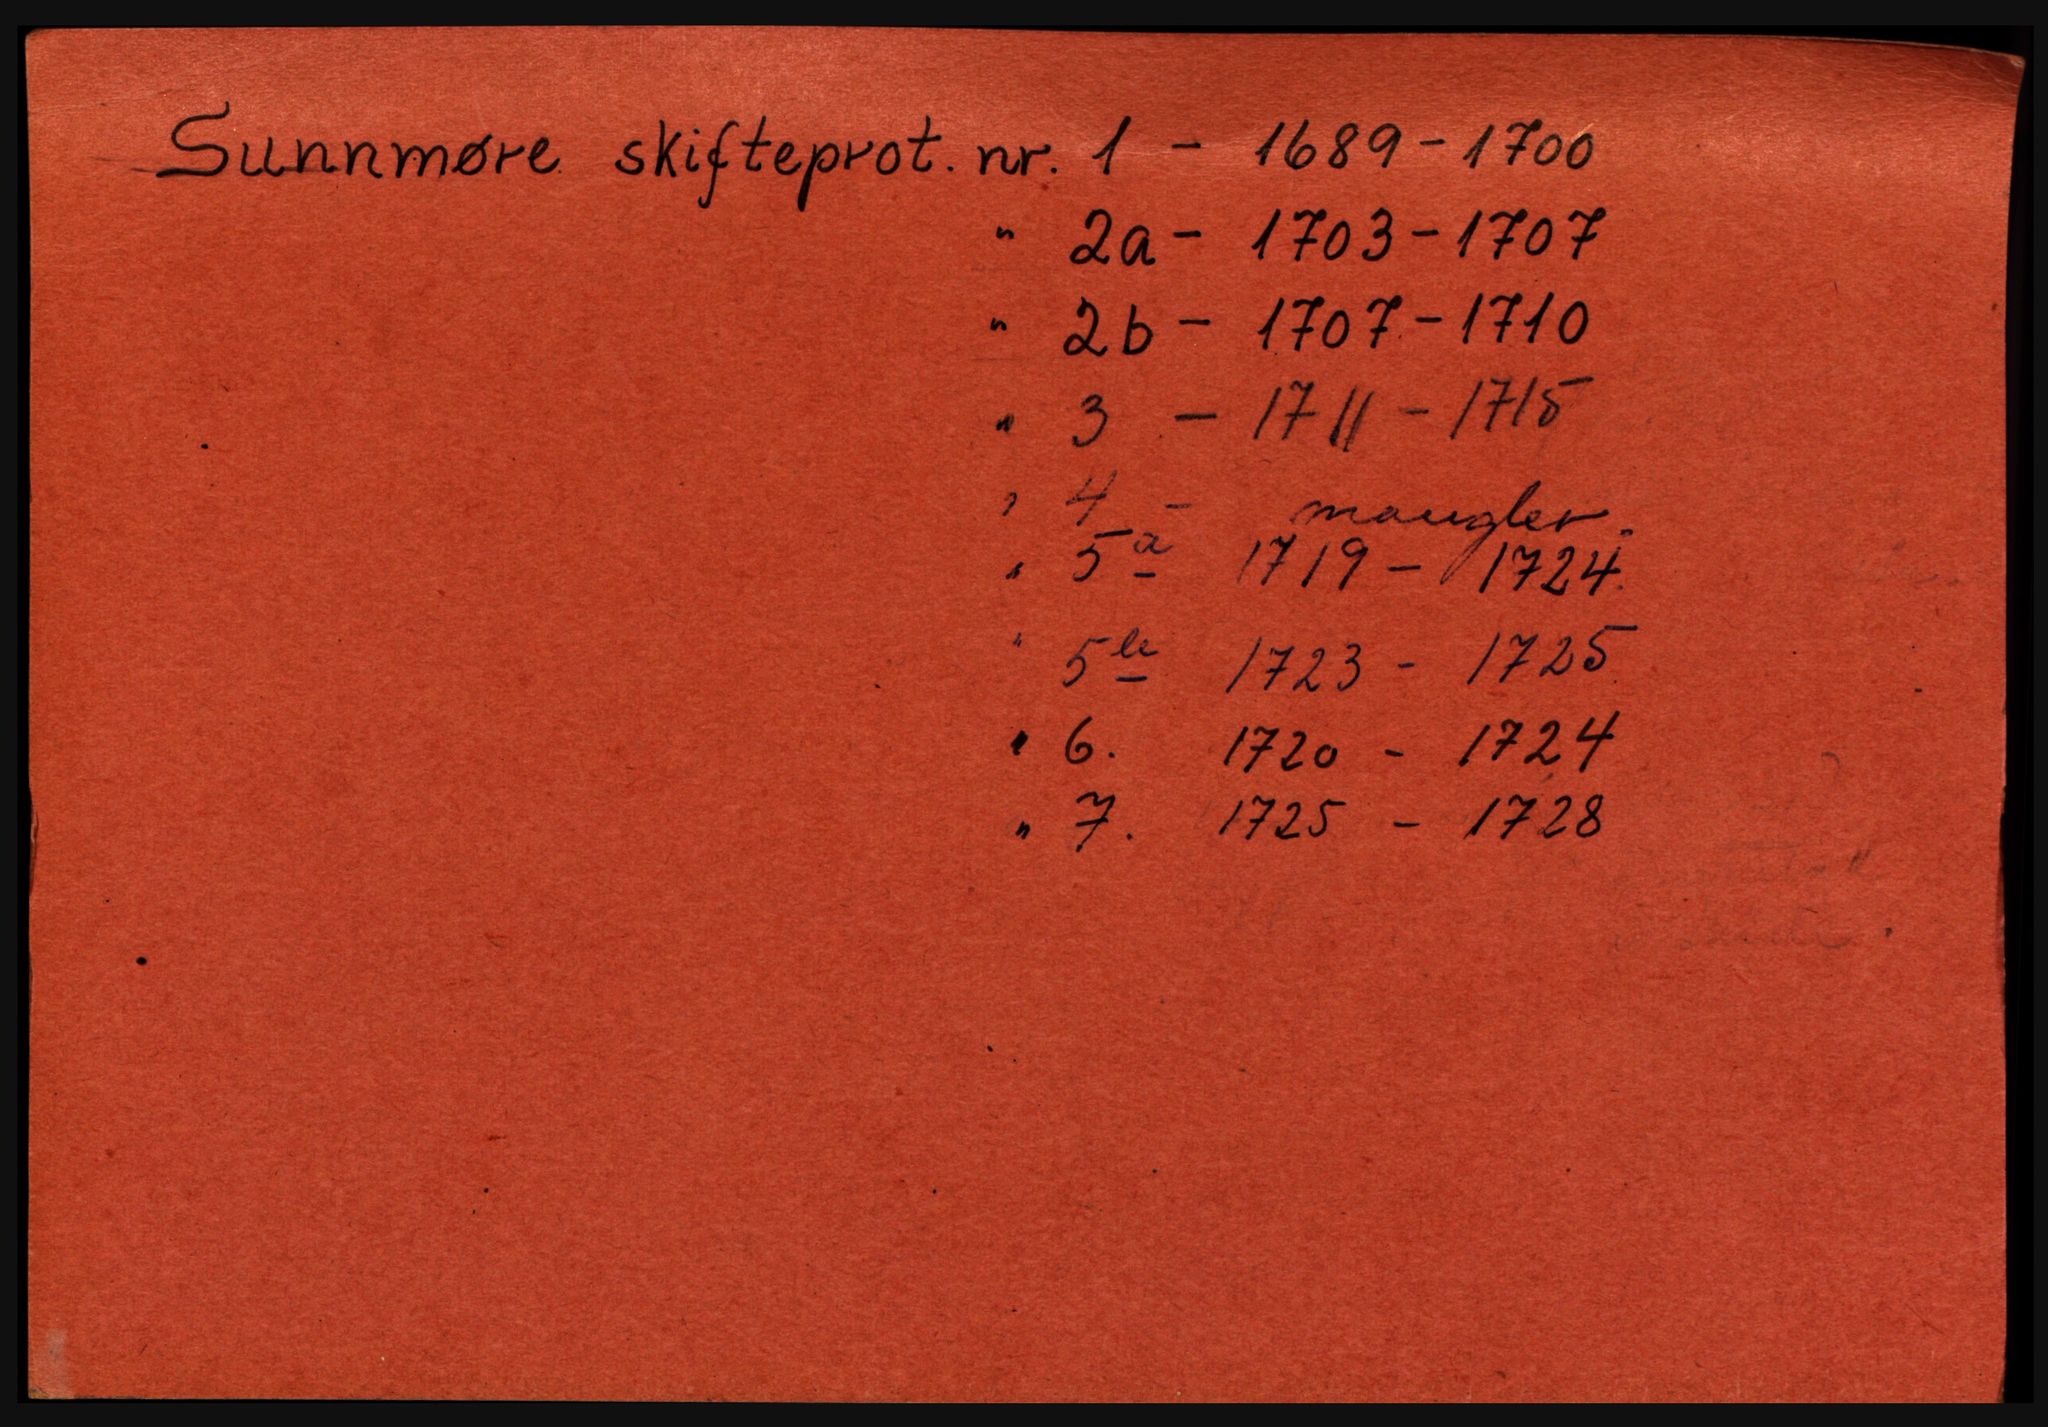 Sunnmøre skifteprot. nr. 1 - 1689-1700
" 2a - 1703-1707
" 2b - 1707-1710
" 3 - 1711 - 1715
" 4 - mangler.
" 5a 1719 - 1724.
" 5b 1723 - 1725
" 6. 1720 - 1724
" 7. 1725 - 1728